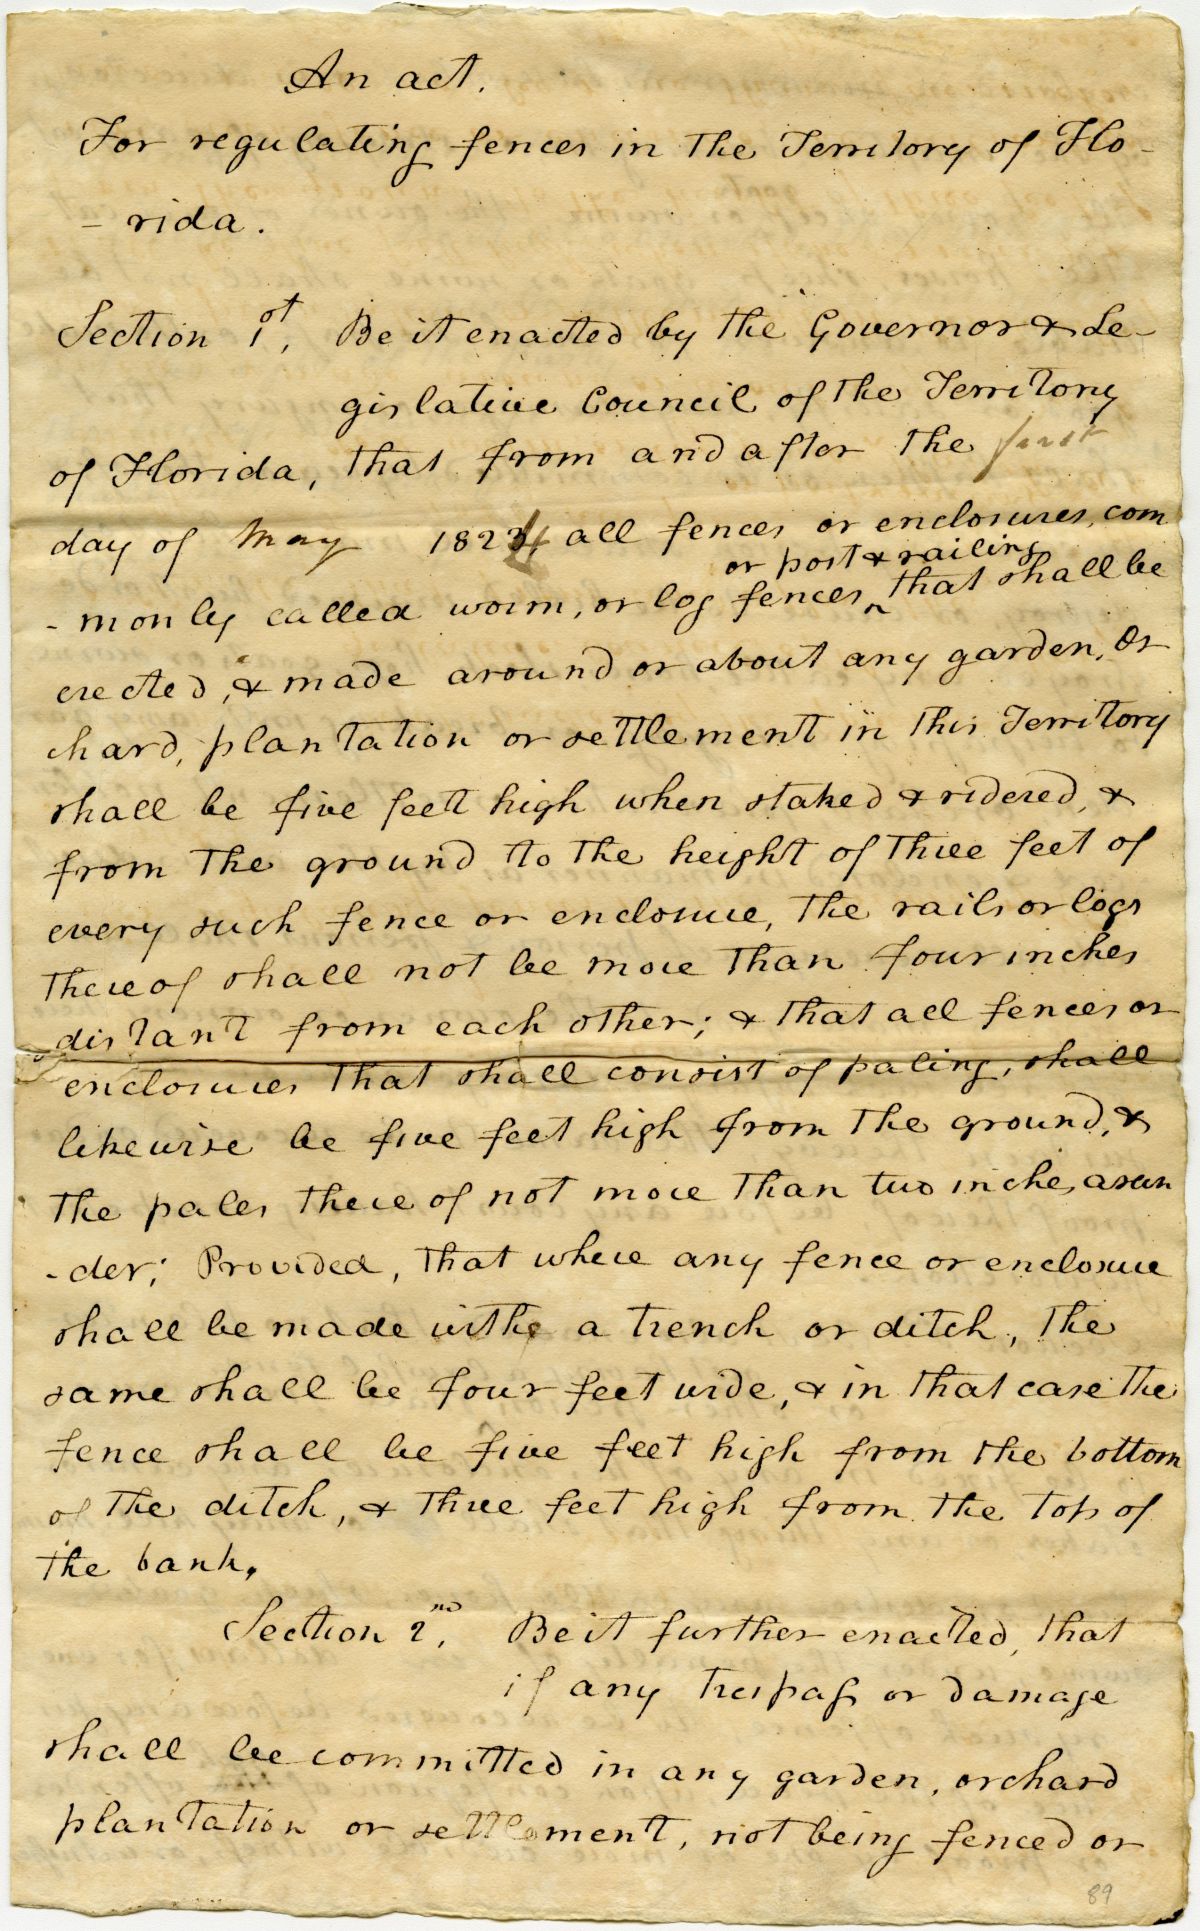 An act.
For regulating fences in the Territory of Flo-
- rida.
Section 1st. Be it enacted by the Governor & Le-
gislative Council of the Territory
of Florida, that from and after the first
day of May 1824 all fences or enclosures, com
or post & railing
- monly called worm, or log fences ^ that shall be
erected, & made around or about any garden, or
chard, plantation or settlement in this Territory
shall be five feet high when staked & ridered, &
from the ground to the height of three feet of
every such fence or enclosure, the rails or logs
thereof shall not be more than four inches
distant from each other; & that all fences or
enclosures that shall consist of paling, shall
likewise be five feet high from the ground, &
the pales thereof not more than two inches asun
-der; Provided, that where any fence or enclosure
shall be made with a trench or ditch, the
same shall be four feet wide, & in that case the
fence shall be five feet high from the bottom
of the ditch, & three feet high from the top of
the bank.
Section 2nd. Be it further enacted, that
if any trespass or damage
shall be committed in any garden, orchard
plantation or settlement, not being fenced or
89